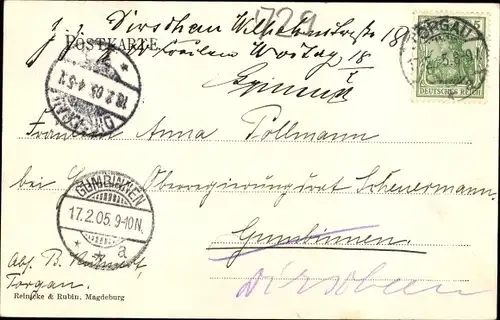 729
z. Z. Dirschau Wilhelmstraße 18
POSTKARTE
TORGAU
5. 8-9
DEUTSCHES REICH
5
DIRSCHAU
18.2.05.4-5
Fräulein Anna Pollmann
bei Oberregierungsrat Scheuermann
GUMBINNEN
17.2.05.9-10N.
a
Gumbinnen
Dirschau
Abs. B.
Torgau.
Reinicke & Rubin, Magdeburg